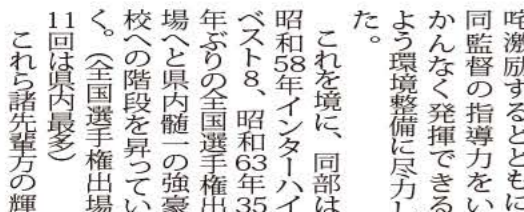 咤激励するとともに
同監督の指導力をい
かんなく発揮できる
よう環境整備に尽力し
た。
これを境に、同部は
昭和58年インターハイ
ベスト8、昭和63年35
年ぶりの全国選手権出
場へと県内髄一の強豪
校への階段を昇ってい
く。（全国選手権出場
11回は県内最多）
これら諸先輩方の輝